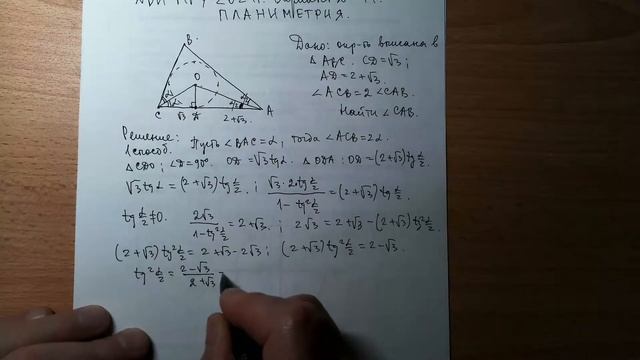 ПЛАНИМЕТРИЯ.
B
O
C
√3
D
2+√3
A
Дано: окр-ть вписана в
△ABC. CD=√3;
AD=2+√3.
∠ACB=2∠CAB.
Найти ∠CAB.
Решение: Пусть ∠BAC=α, тогда ∠ACB=2α.
1 способ.
△CDO; ∠D=90°. OD=√3 tgα. △ODA: OD=(2+√3)tg α/2.
√3 tgα=(2+√3)tg α/2. ; √3·2·tg α/2 / 1-tg² α/2 =(2+√3)tg α/2.
tg α/2≠0. 2√3 / 1-tg² α/2 =2+√3. ; 2√3=2+√3-(2+√3)tg² α/2.
(2+√3)tg² α/2=2+√3-2√3; (2+√3)tg² α/2=2-√3.
tg² α/2 = 2-√3 / 2+√3 =